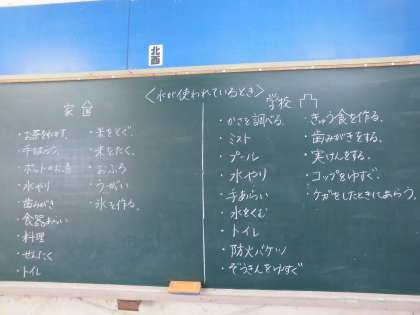 北西
〈水が使われているとき〉
家
学校
・お茶をわかす。
・手あらい
・ポットのお湯
・水やり
・歯みがき
・食器あらい
・料理
・せんたく
・トイレ
・米をとぐ。
・米をたく。
・おふろ
・うがい
・氷を作る。
・かさを調べる。
・ミスト
・プール
・水やり
・手あらい
・水をくむ
・トイレ
・防火バケツ
・ぞうきんをゆすぐ
・きゅう食を作る。
・歯みがきをする。
・実けんをする。
・コップをゆすぐ。
・ケガをしたときにあらう。